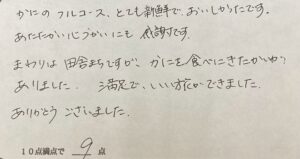 かにのフルコース、とても新鮮でおいしかったです。
あたたかい心づかいにも感謝です。
まわりは田舎まちですが、かにを食べにきたかいが
ありました。満足で、いい旅ができました。
ありがとうございました。
10点満点で 9 点